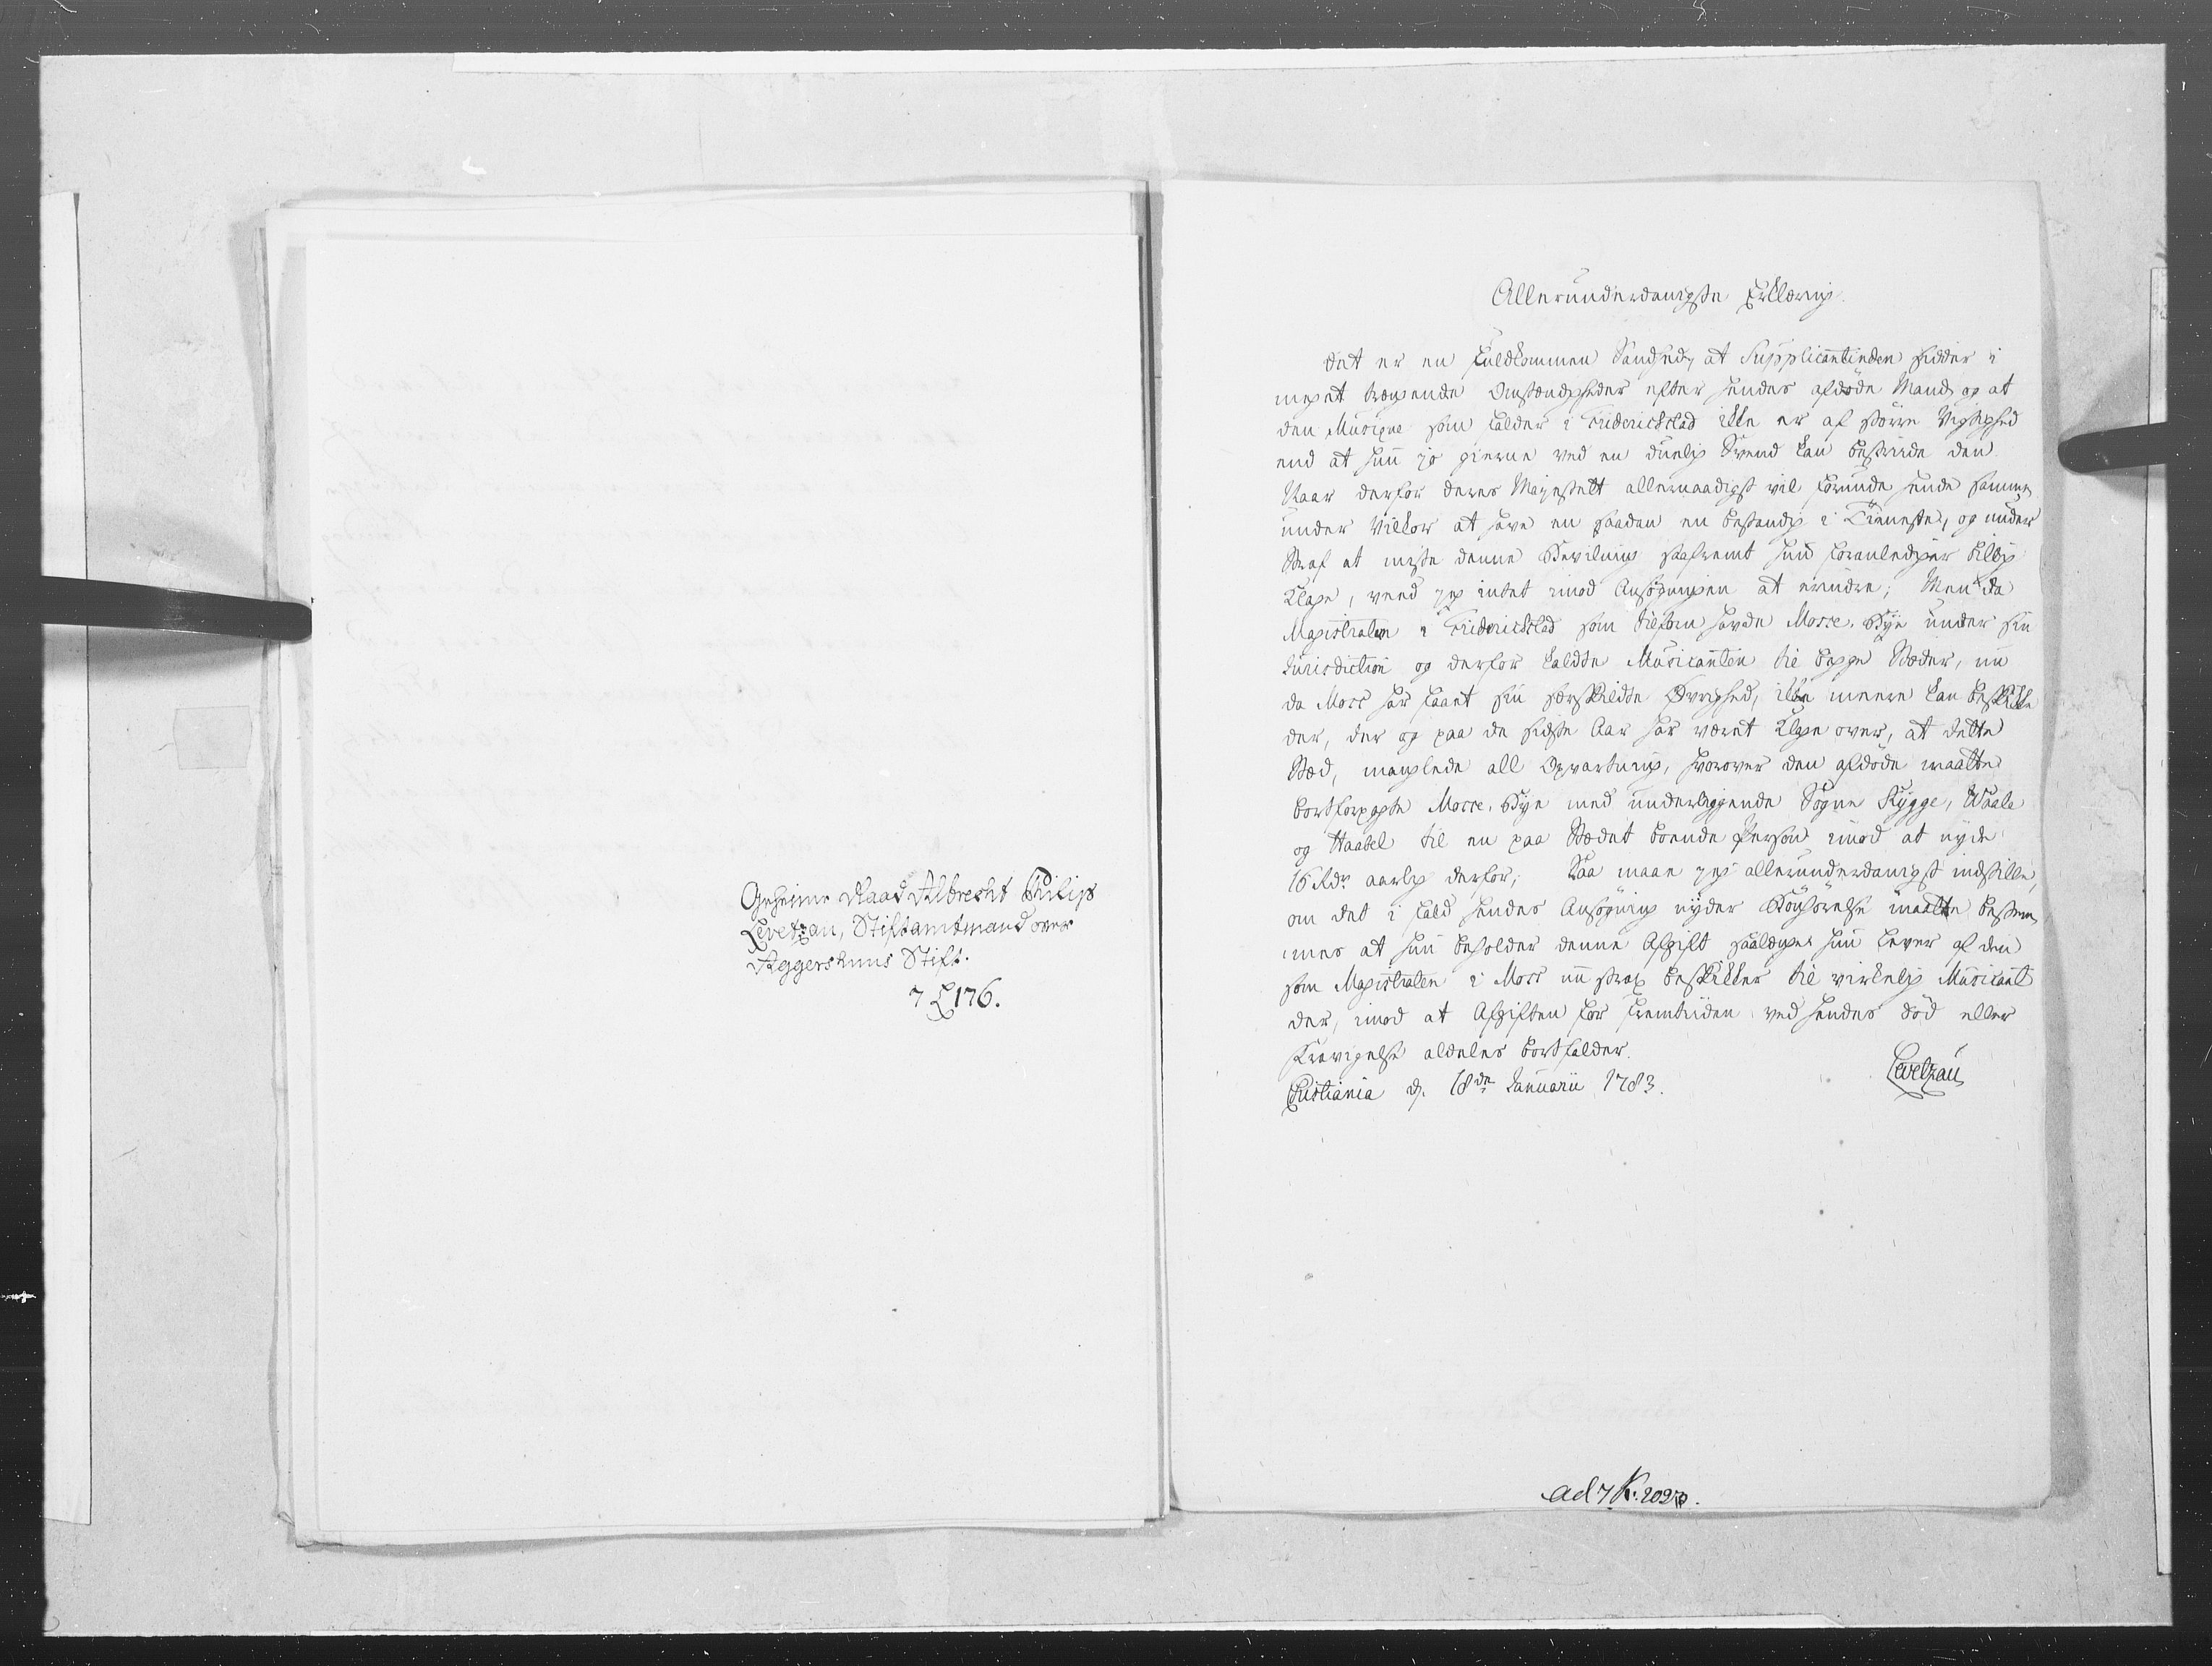 Geheime Raad Albrecht Philip
Levetzau, Stiftamtmand over
Aggershuus Stift.
7 L 176.
Allerunderdanigste Erklæring.
Det er en fuldkommen Sandhed, at Supplicantinden sidder i
meget trængende Omstændigheder efter hendes afdöde Mand, og at
den Musique som falder i Friderichstad ikke er af större Vigtighed
end at hun jo gierne ved en duelig Svend kan bestriide den.
Naar derfor Deres Majestett allernaadigst vil forunde hende samme
under Vilkor at have en saadan en bestandig i Tieneste, og under
Straf at miste denne Bevilning saafremt hun foranlediger billig
Klage, veed jeg intet imod Ansögningen at erindre; Men da
Magistraten i Friderichstad som tilforn havde Mosse-Bye under sin
Jurisdiction og derfor kaldte Musicanten til begge Stæder, nu
da Moss har faaet sin særskildte Øvrighed, ikke meere kan beskikke
der, der og paa de sidste Aar har været Klage over, at dette
Stæd, manglede all Opvartning, hvorover den afdöde maatte
bortforpagte Mosse-Bye med underliggende Sogne Rygge, Waale
og Haabel til en paa Stædet boende Person imod at nyde
16 Rdr aarlig derfor; Saa maae jeg allerunderdanigst indstille,
om det i fald hendes Ansögning nyder Bönhörelse maatte bestem-
mes at hun beholder denne Afgift saalænge hun lever af den
som Magistraten i Moss nu strax beskikker til virkelig Musicant
der, imod at Afgiften for Fremtiden ved hendes Död eller
Fravigelse aldeles bortfalder.
Christiania d. 18de Januarii 1783.
Levetzau
ad 7 K: 2027.